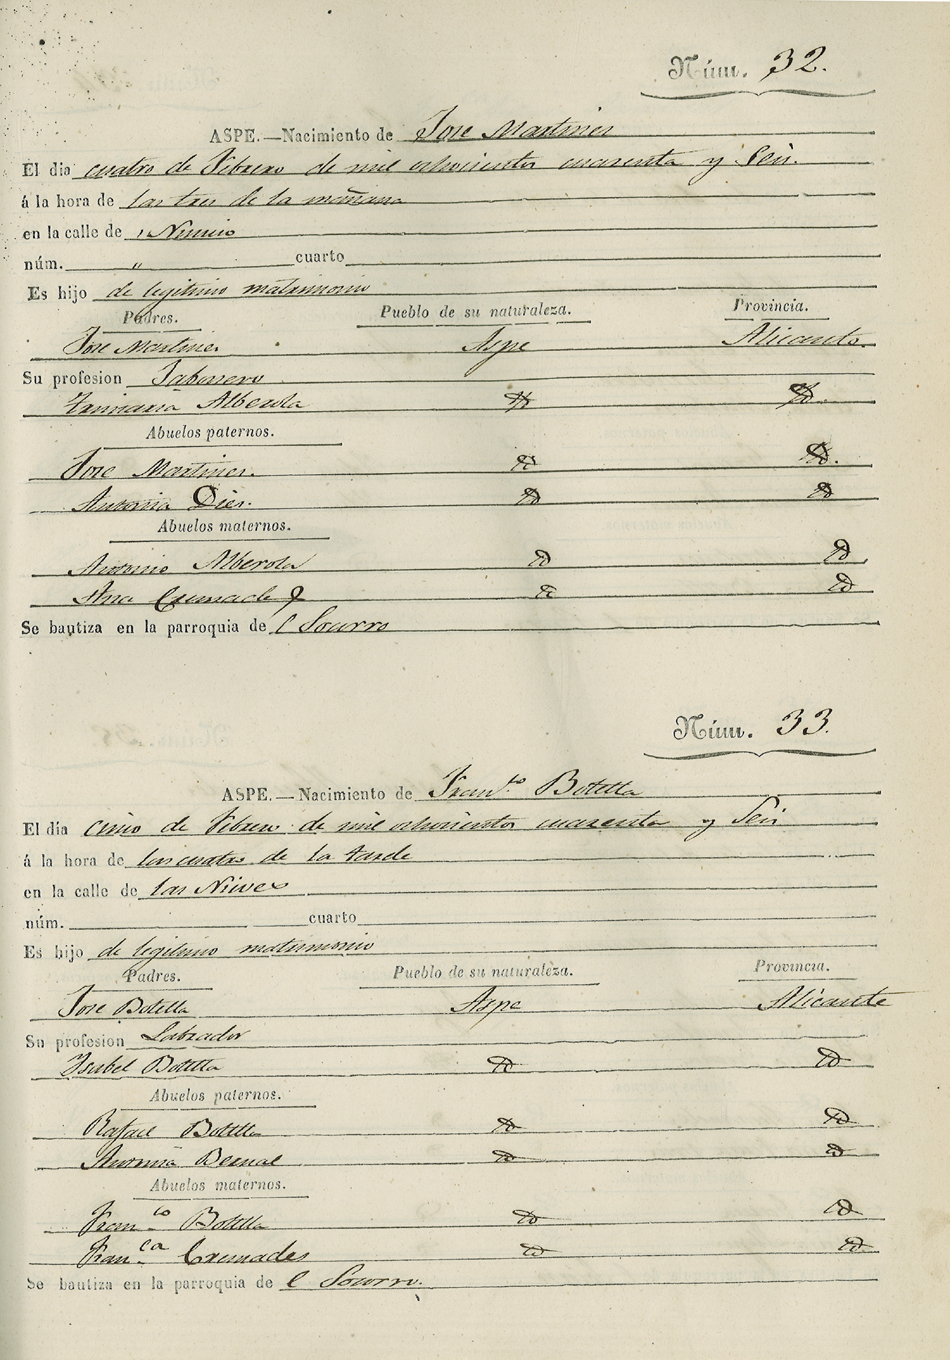 Núm. 32.
ASPE.—Nacimiento de Jose Martinez
El dia cuatro de Febrero de mil ochocientos cuarenta y Seis.
á la hora de las tres de la mañana
en la calle de
núm. " cuarto
Es hijo de legitimo matrimonio
Padres. Pueblo de su naturaleza. Provincia.
Jose Martinez Aspe Alicante.
Su profesion Jabonero
Alberola Id Id
Abuelos paternos.
Jose Martinez. Id Id.
Antonia Dies. Id Id
Abuelos maternos.
Antonio Alberola Id Id
Ana Cremades Id Id
Se bautiza en la parroquia de l Socorro
Núm. 33.
ASPE.—Nacimiento de Fran.co Botella
El día cinco de Febrero de mil ochocientos cuarenta y Seis
á la hora de las cuatro de la tarde
en la calle de las Nieves
núm. cuarto
Es hijo de legitimo matrimonio
Padres. Pueblo de su naturaleza. Provincia.
Jose Botella Aspe Alicante
Su profesion Labrador
Isabel Botella Id Id
Abuelos paternos.
Rafael Botella Id Id
Antonia Bernal Id Id
Abuelos maternos.
Fran.co Botella Id Id
Fran.ca Cremades Id Id
Se bautiza en la parroquia de l Socorro.